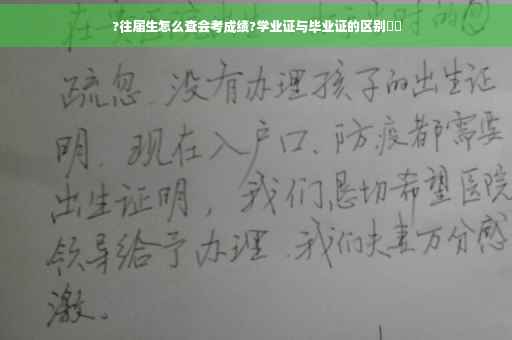 ?往届生怎么查会考成绩?学业证与毕业证的区别
疏忽.没有办理孩子的出生证
明.现在入户口、防疫都需要
出生证明，我们恳切希望医院
领导给予办理.我们夫妻万分感
激。